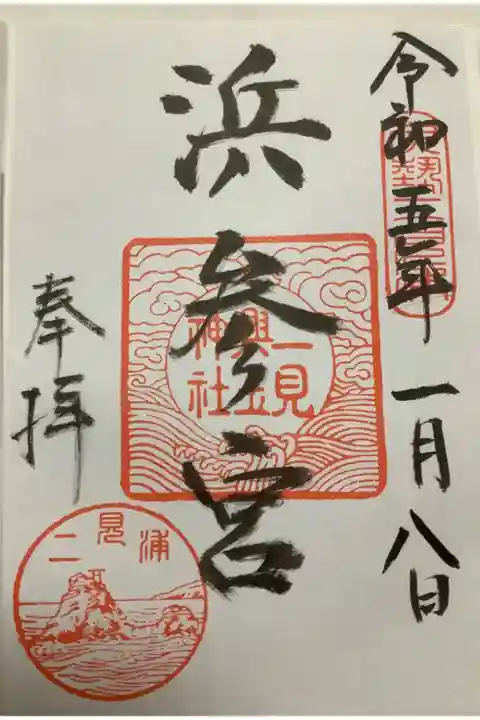 令和五年一月八日
浜参宮
二見
興玉
神社
奉拝
二見浦